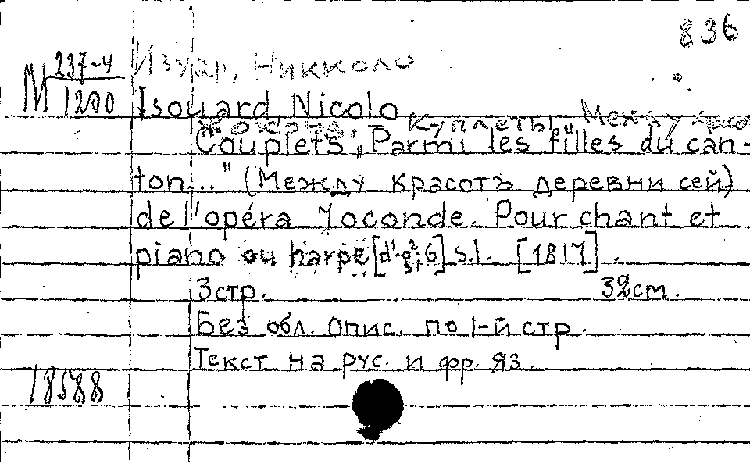 836
М 237-4/1200
Изуар, Никколо
Isouard Nicolo
Куплеты „Между красо
"Couplets „Parmi les filles du can-
ton..." (Между красотъ деревни сей)
de l'opéra Joconde. Pour chant et
piano ou harpe s.l. [1817].
3 стр. 32 cm.
Без обл. Опис. по 1-й стр.
Текст на рус. и фр. яз.
18588